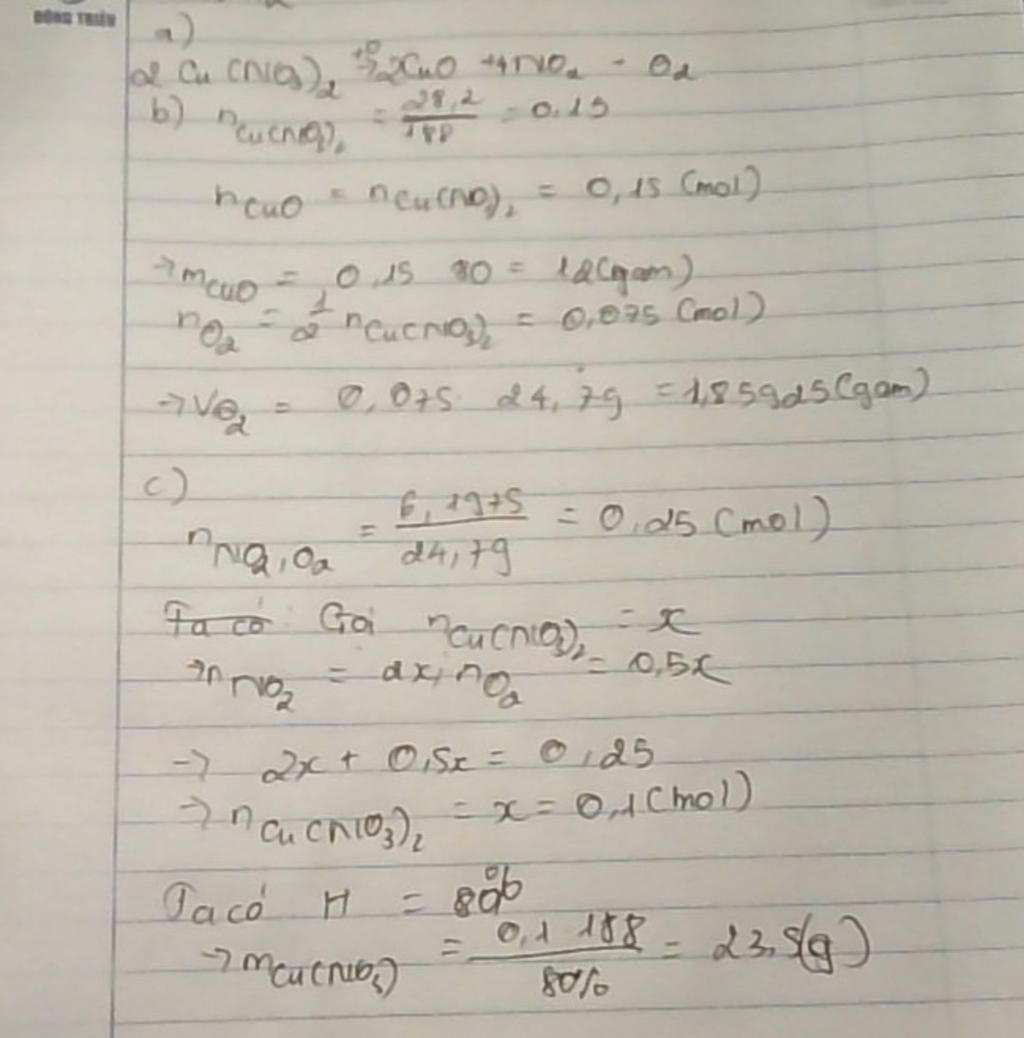 ĐÔNG TRIỀU
a)
2 Cu(NO3)2 t°→ 2CuO + 4NO2 - O2
b) nCu(NO3)2 = 28,2/188 = 0,15
nCuO = nCu(NO3)2 = 0,15 (mol)
→ mCuO = 0,15 80 = 12(gam)
nO2 = 1/2 nCu(NO3)2 = 0,075 (mol)
→ VO2 = 0,075 24,79 = 1,85925(gam)
c)
nNO2,O2 = 6,1975/24,79 = 0,25 (mol)
Ta có Gọi nCu(NO3)2 = x
→ nNO2 = 2x, nO2 = 0,5x
→ 2x + 0,5x = 0,25
→ nCu(NO3)2 = x = 0,1 (mol)
Ta có H = 80%
→ mCu(NO3) = 0,1 188/80% = 23,5(g)